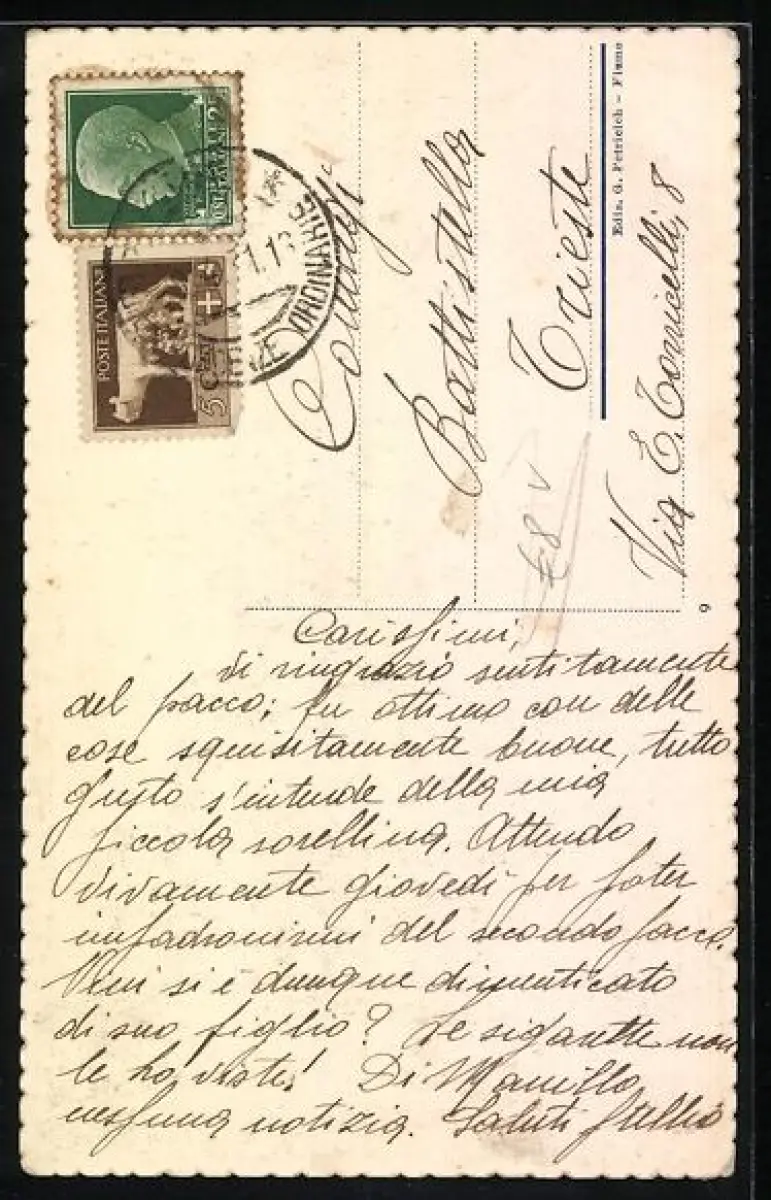 POSTE ITALIANE
5 C
ORDINARIE
Famiglia
Battistella
Trieste
Via E. Torricelli, 8
Ediz. G. Petricich - Fiume
9
€8 V
Carissimi,
Vi ringrazio sentitamente
del pacco; fu ottimo con delle
cose squisitamente buone, tutto
gusto s'intende della mia
piccola sorellina. Attendo
vivamente giovedì per poter
impadronirmi del secondo pacco.
si è dunque dimenticato
di suo figlio? Le sigarette non
le ho viste! Di Manillo
nessuna notizia. Saluti Stellio